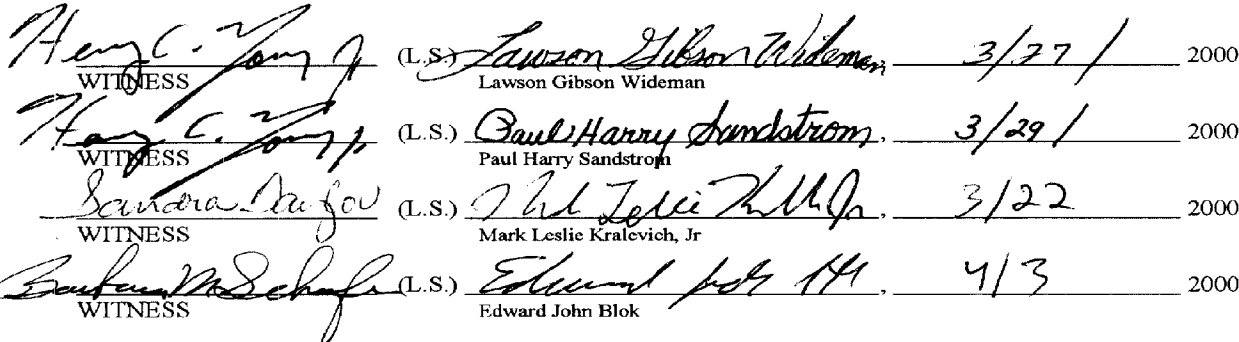 Henry C. Young Jr (L.S.) Lawson Gibson Wideman, 3/27/ 2000
WITNESS Lawson Gibson Wideman
Henry C. Young Jr (L.S.) Paul Harry Sandstrom, 3/29/ 2000
WITNESS Paul Harry Sandstrom
Sandra (L.S.) Mark Leslie Jr, 3/22 2000
WITNESS Mark Leslie Kralevich, Jr
Barbara M Schafer (L.S.) Edward, 4/3 2000
WITNESS Edward John Blok